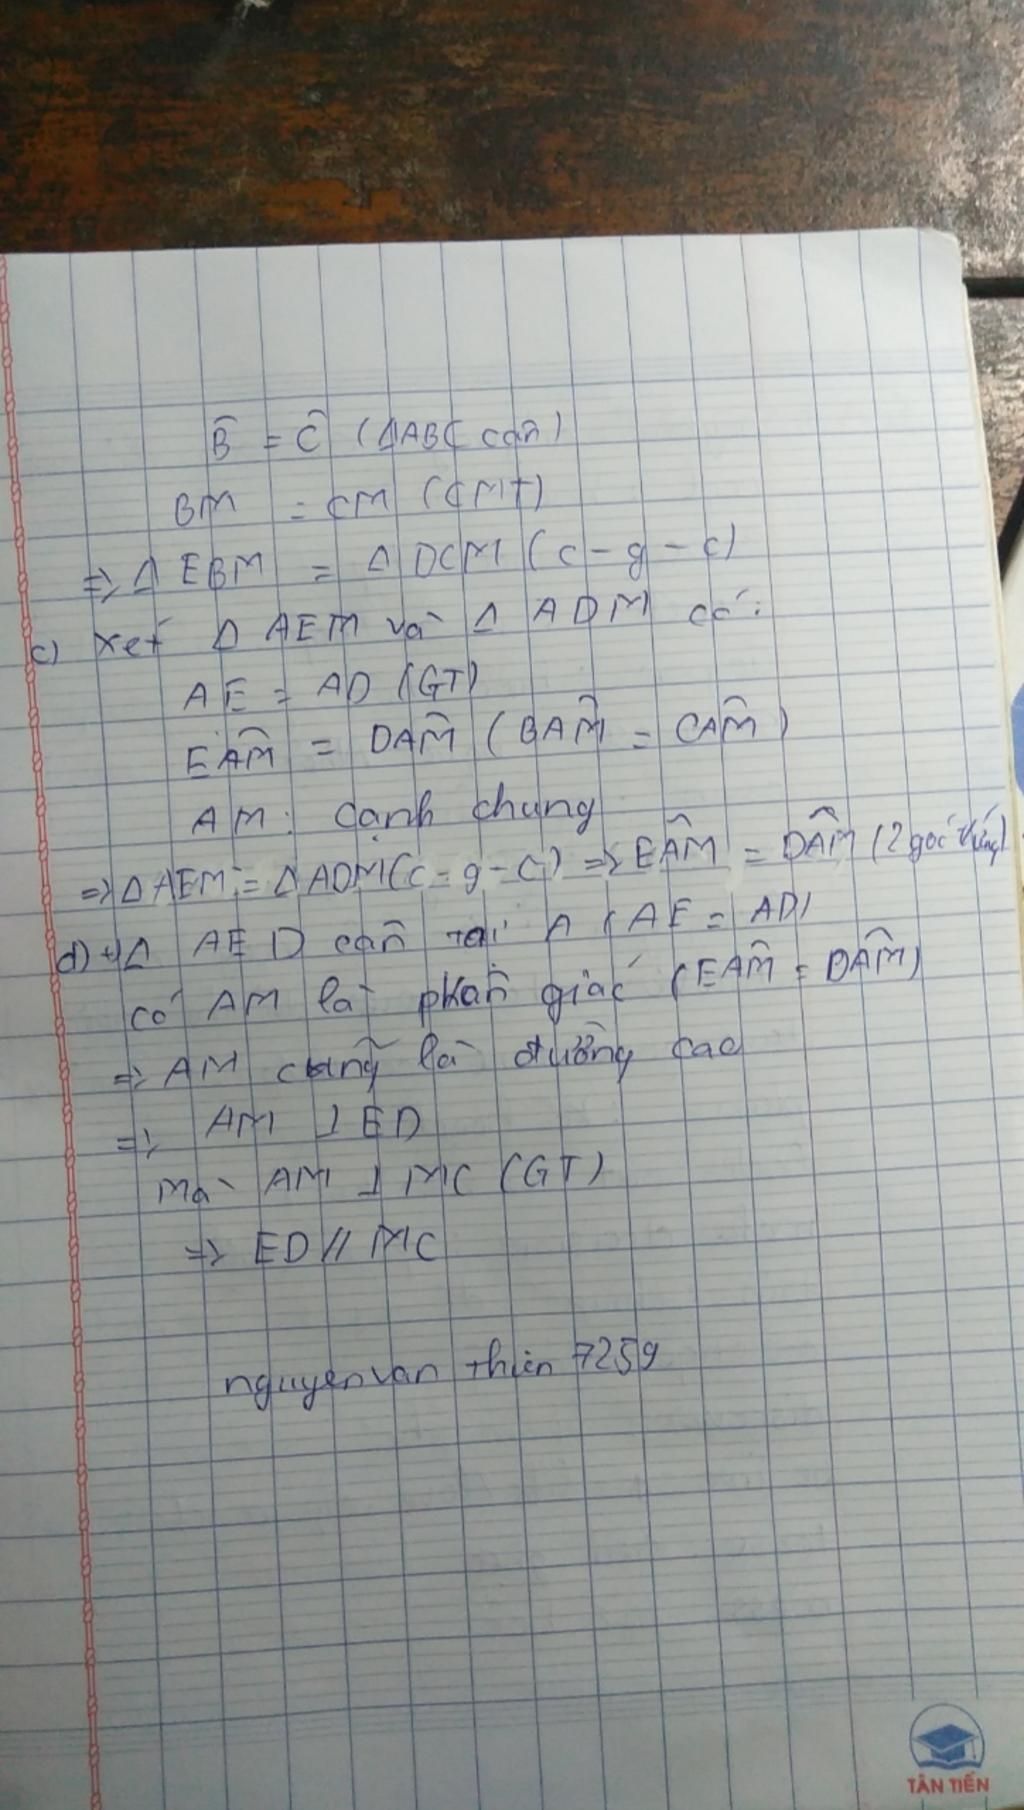 B̂ = Ĉ (ΔABC cân)
BM = CM (CMT)
=> Δ EBM = Δ DCM (c-g-c)
c) xét Δ AEM và Δ ADM có:
AE = AD (GT)
EAM̂ = DAM̂ (BAM̂ = CAM̂)
AM: cạnh chung
=> Δ AEM = Δ ADM (c-g-c) => EÂM = DÂM (2 góc tứng)
d) +) Δ AED cân tại A (AE = AD)
có AM là phân giác (EAM̂ = DAM̂)
=> AM cũng là đường cao
=> AM ⊥ ED
Mà AM ⊥ MC (GT)
=> ED // MC
nguyenvan thien 7259
TÂN TIẾN